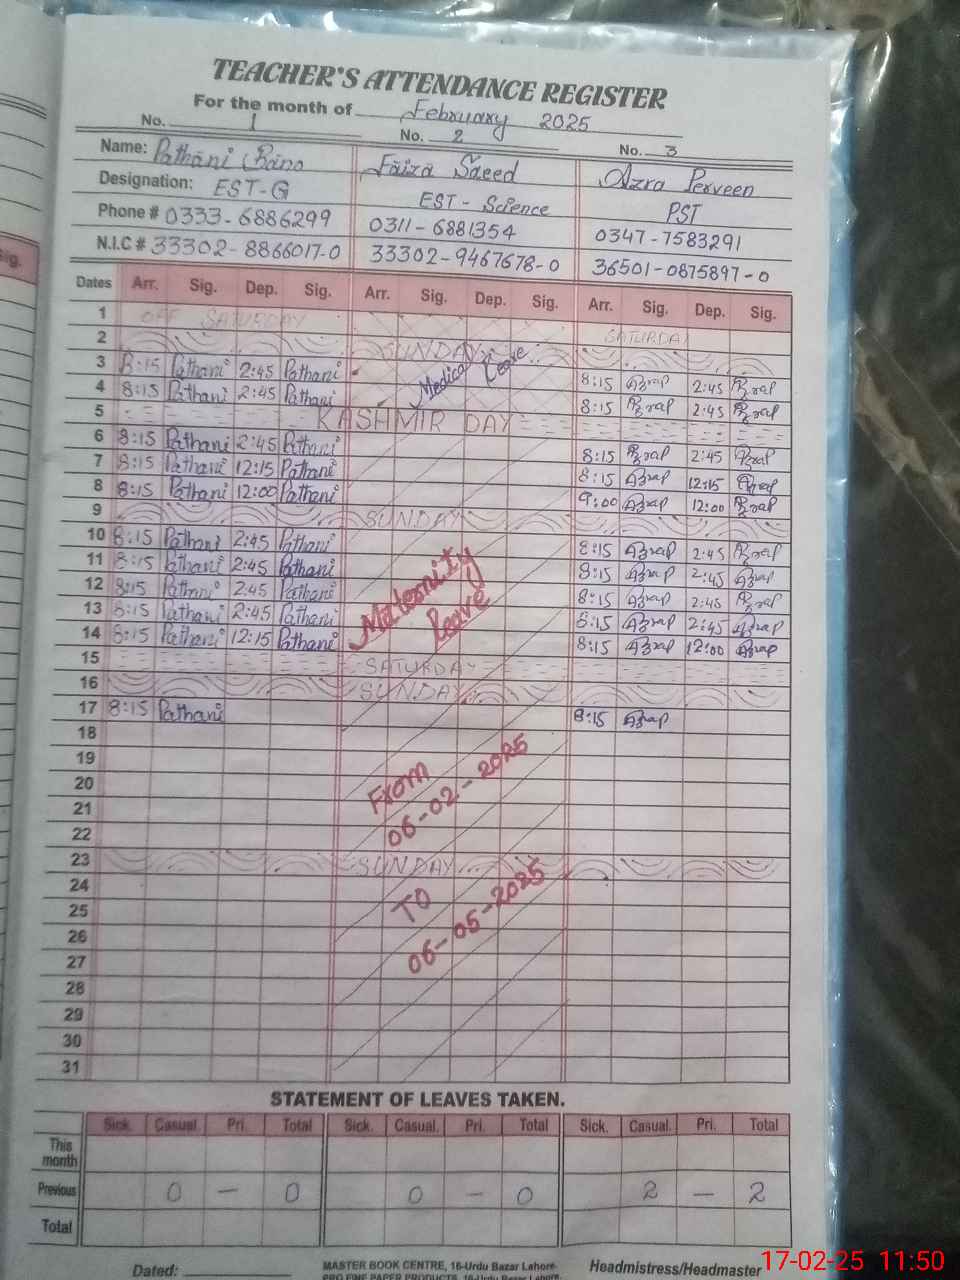 TEACHER'S ATTENDANCE REGISTER
For the month of February 2025
No. 1 No. 2 No. 3
Name: Pathani Bano Faiza Saeed Azra Perveen
Designation: EST-G EST - Science PST
Phone # 0333-6886299 0311-6881354 0347-7583291
N.I.C # 33302-8866017-0 33302-9467678-0 36501-0875897-0
Dates Arr. Sig. Dep. Sig. Arr. Sig. Dep. Sig. Arr. Sig. Dep. Sig.
1 OFF SATURDAY SATURDAY
2 SUNDAY
3 8:15 Pathani 2:45 Pathani Medical Leave 8:15 2:45
4 8:15 Pathani 2:45 Pathani 8:15 2:45
5 KASHMIR DAY
6 8:15 Pathani 2:45 Pathani 8:15 2:45
7 8:15 Pathani 12:15 Pathani 8:15 12:15
8 8:15 Pathani 12:00 Pathani 9:00 12:00
9 SUNDAY
10 8:15 Pathani 2:45 Pathani 8:15 2:45
11 8:15 Pathani 2:45 Pathani 8:15 2:45
12 8:15 Pathani 2:45 Pathani Maternity 8:15 2:45
13 8:15 Pathani 2:45 Pathani Leave 8:15 2:45
14 8:15 Pathani 12:15 Pathani 8:15 12:00
15 SATURDAY
16 SUNDAY
17 8:15 Pathani 8:15
18
19
20 From
21 06-02-2025
22
23 SUNDAY
24
25 TO
26 06-05-2025
27
28
29
30
31
STATEMENT OF LEAVES TAKEN.
Sick. Casual. Pri. Total Sick. Casual. Pri. Total Sick. Casual. Pri. Total
This month
Previous 0 — 0 0 — 0 2 — 2
Total
Dated: MASTER BOOK CENTRE, 16-Urdu Bazar Lahore. Headmistress/Headmaster
PRO FINE PAPER PRODUCTS, 16-Urdu Bazar Lahore.
17-02-25 11:50